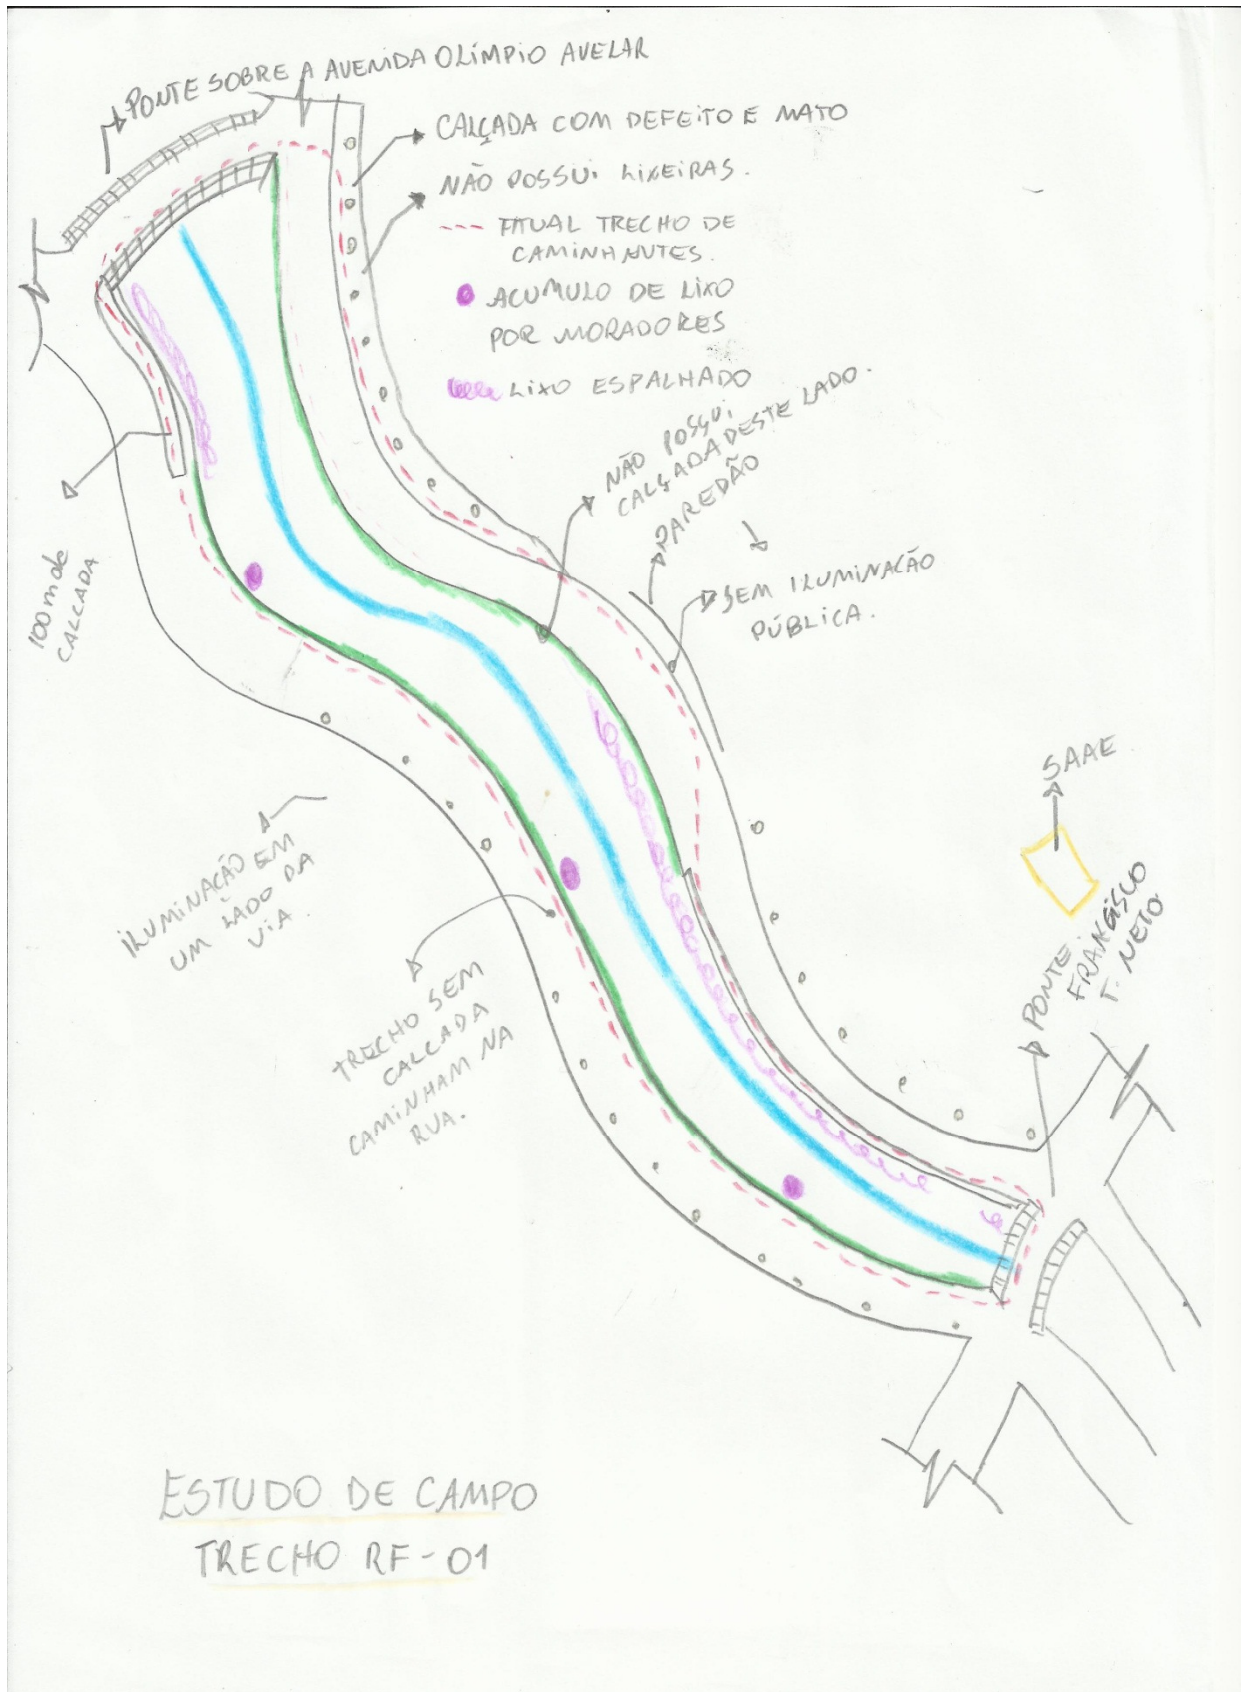 PONTE SOBRE A AVENIDA OLÍMPIO AVELAR
CALÇADA COM DEFEITO E MATO
NÃO POSSUI LIXEIRAS.
TRECHO DE
CAMINHANTES.
ACUMULO DE LIXO
POR MORADORES
LIXO ESPALHADO
NÃO POSSUI
CALÇADA DESTE LADO.
PAREDÃO
SEM ILUMINAÇÃO
PÚBLICA.
100m de
CALCADA
SAAE
PONTE
FRANCISCO
T. NETO
ILUMINAÇÃO EM
UM LADO DA
VIA
TRECHO SEM
CALCADA
CAMINHAM NA
RUA.
ESTUDO DE CAMPO
TRECHO RF-01